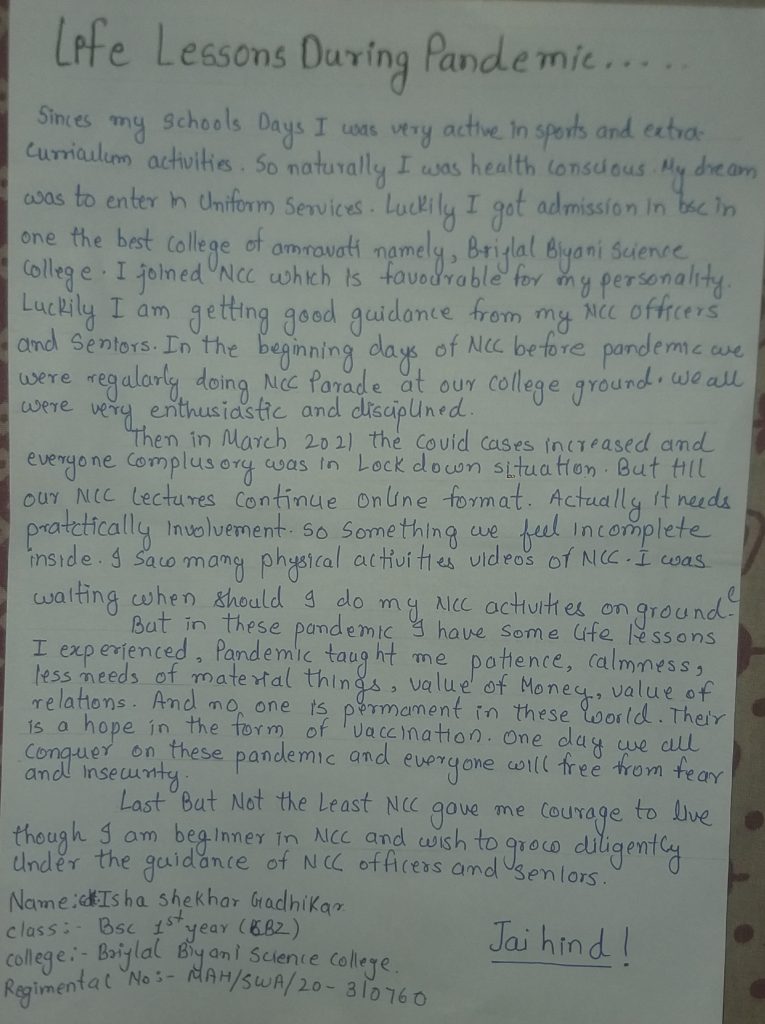 Life Lessons During Pandemic.....
Sinces my schools Days I was very active in sports and extra-
curriculum activities. So naturally I was health conscious. My dream
was to enter in Uniform Services. Luckily I got admission in bsc in
one the best college of amravati namely, Brijlal Biyani Science
College. I joined NCC which is favourable for my personality.
Luckily I am getting good guidance from my NCC officers
and Seniors. In the beginning days of NCC before pandemic we
were regularly doing NCC Parade at our college ground. we all
were very enthusiastic and disciplined.
Then in March 2021 the Covid cases increased and
everyone complusory was in Lock down situation. But till
our NCC Lectures continue online format. Actually it needs
pratctically Involvement. So something we feel incomplete
inside. I saw many physical activities videos of NCC. I was
waiting when should I do my NCC activities on ground.
But in these pandemic I have some life lessons
I experienced, Pandemic taught me patience, calmness,
less needs of material things, value of Money, value of
relations. And no one is permanent in these world. Their
is a hope in the form of vaccination. One day we all
conquer on these pandemic and everyone will free from fear
and insecurity.
Last But Not the Least NCC gave me courage to live
though I am beginner in NCC and wish to grow diligently
Under the guidance of NCC officers and Seniors.
Name:- Isha Shekhar Gadhikar
class:- Bsc 1st year (BBZ)
college:- Brijlal Biyani Science College.
Jai hind!
Regimental No:- MAH/SWA/20-310760